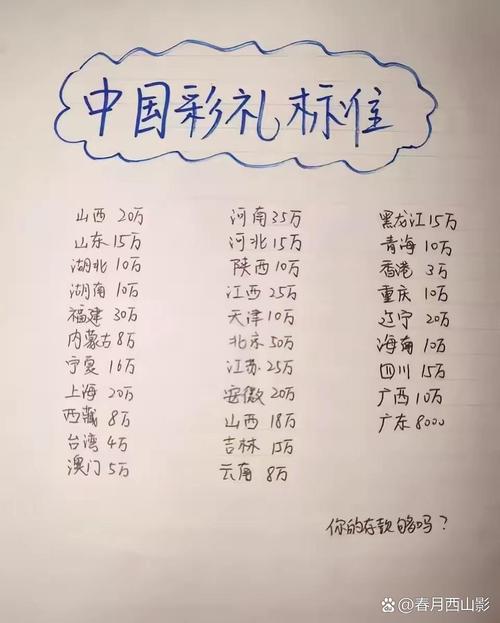 中国彩礼标准
山西 20万
山东 15万
湖北 10万
湖南 10万
福建 30万
内蒙古 8万
宁夏 16万
上海 20万
西藏 8万
台湾 4万
澳门 5万
河南 35万
河北 15万
陕西 10万
江西 25万
天津 10万
北京 50万
江苏 25万
安徽 20万
山西 18万
吉林 15万
云南 8万
黑龙江 15万
青海 10万
香港 3万
重庆 10万
辽宁 20万
海南 10万
四川 15万
广西 10万
广东 8000
你的存款够吗?
春月西山影